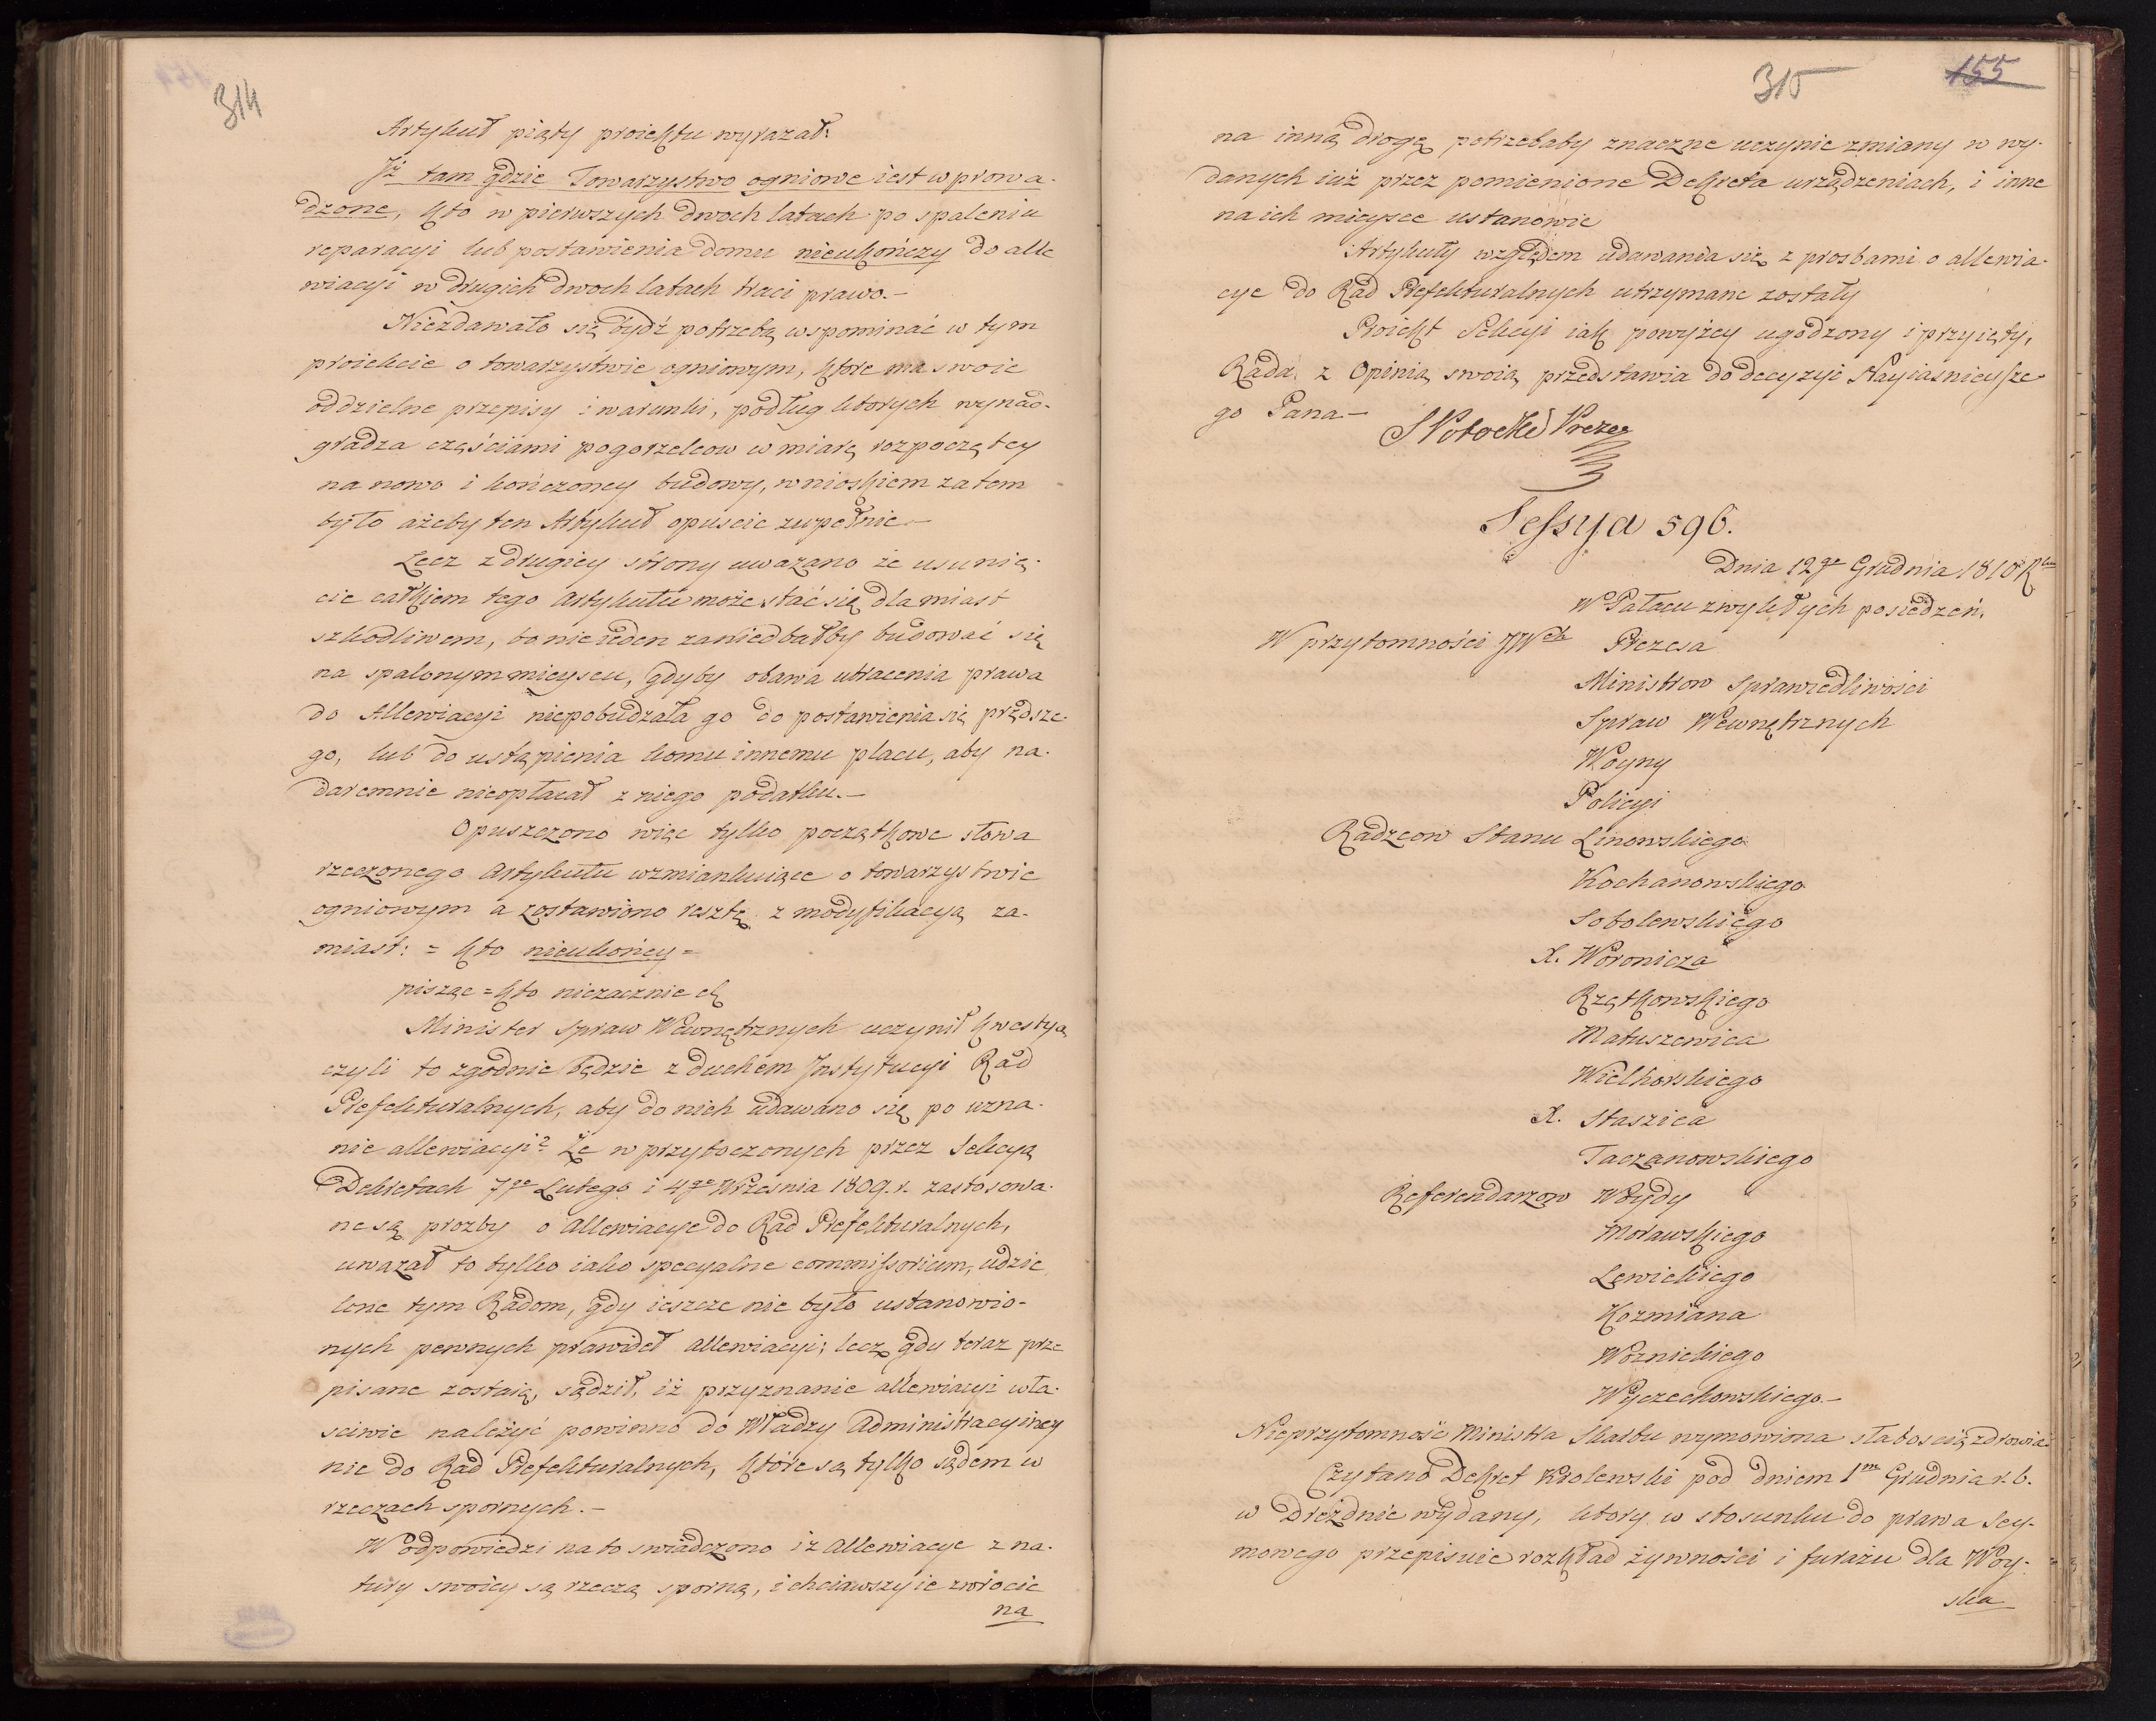 314
Artykuł piąty proiektu wyrazał:
Jż tam gdzie Towarzystwo ogniowe iest wprowa-
dzone, kto w pierwszych dwoch latach po spaleniu
reparacyi lub postawienia domu nieukończy do alle
wiacyi w drugich dwoch latach traci prawo.—
Niezdawało się bydź potrzebą wspominać w tym
proiekcie o towarzystwie ogniowym, ktore ma swoie
oddzielne przepisy i warunki, podług ktorych wynad-
gradza częściami pogorzelcow w miarę rozpoczętey
na nowo i kończoney budowy, wnioskiem zatem
było ażeby ten Artykuł opuscic zupełnie.—
Lecz z drugiey strony uwazano że usunię-
cie całkiem tego Artykułu może stać się dla miast
szkodliwem, bo nieieden zaniedbałby budować się
na spalonym mieyscu, gdyby obawa utracenia prawa
do Allewiacyi niepobudzała go do postawienia się prędsze-
go, lub do ustąpienia komu innemu placu, aby na-
daremnie nieopłacał z niego podatku.—
Opuszczono więc tylko początkowe słowa
rzeczonego Artykułu wzmiankuiące o towarzystwie
ogniowym a zostawiono resztę z modyfikacyą za-
miast: = kto nieukończy =
pisząc = kto niezacznie etc
Minister Spraw Wewnętrznych uczynił kwestyą
czyli to zgodnie będzie z duchem Jnstytucyi Rad
Prefekturalnych, aby do nich udawano się po uzna-
nie allewiacyi? Że w przytoczonych przez Sekcyą
Dekretach 7go Lutego i 4go Września 1809. r. zastosowa-
ne są prozby o Allewiacye do Rad Prefekturalnych,
uwazał to tylko iako specyalne commissorium, udzie
lone tym Radom, gdy ieszcze nie było ustanowio-
nych pewnych prawideł allewiacyi; lecz gdy teraz prze
pisane zostaią, sądził, iż przyznanie allewiacyi wła-
sciwie należyć powinno do Władzy Administracyiney
nie do Rad Prefekturalnych, które są tylko sądem w
rzeczach spornych.—
W odpowiedzi na to swiadczono iż Allewiacye z na-
tury swoiey są rzeczą sporną, i chciawszy ie zwrocic
na
315
155
na inną drogę potrzebaby znaczne uczynic zmiany w wy-
danych iuż przez pomienione Dekreta urządzeniach, i inne
na ich mieysce ustanowic
Artykuły względem udawania się z prosbami o allewia-
cye do Rad Prefekturalnych utrzymane zostały
Proiekt Sekcyi iak powyżey ugodzony i przyięty,
Rada z Opinią swoią przedstawia do decyzyi Nayiasnieysze-
go Pana—
S Potocki Prezes
Sessya 596.
Dnia 12go Grudnia 1810 Rku
W Pałacu zwykłych posiedzeń.
W przytomności JWch Prezesa
Ministrow Sprawiedliwości
Spraw Wewnętrznych
Woyny
Policyi
Radzcow Stanu Linowskiego
Kochanowskiego
Sobolewskiego
X. Woronicza
Rzętkowskiego
Matuszewica
Wielhorskiego
X. Staszica
Taczanowskiego
Referendarzow Woydy
Morawskiego
Lewickiego
Kozmiana
Woznickiego
Wyczechowskiego.—
Nieprzytomność Ministra Skarbu wymowiona słaboscią zdrowia
Czytano Dekret Krolewski pod dniem 1m Grudnia r. b.
w Dreżdnie wydany, ktory w stosunku do prawa Sey-
mowego przepisuie rozkład żywności i furażu dla Woy-
ska